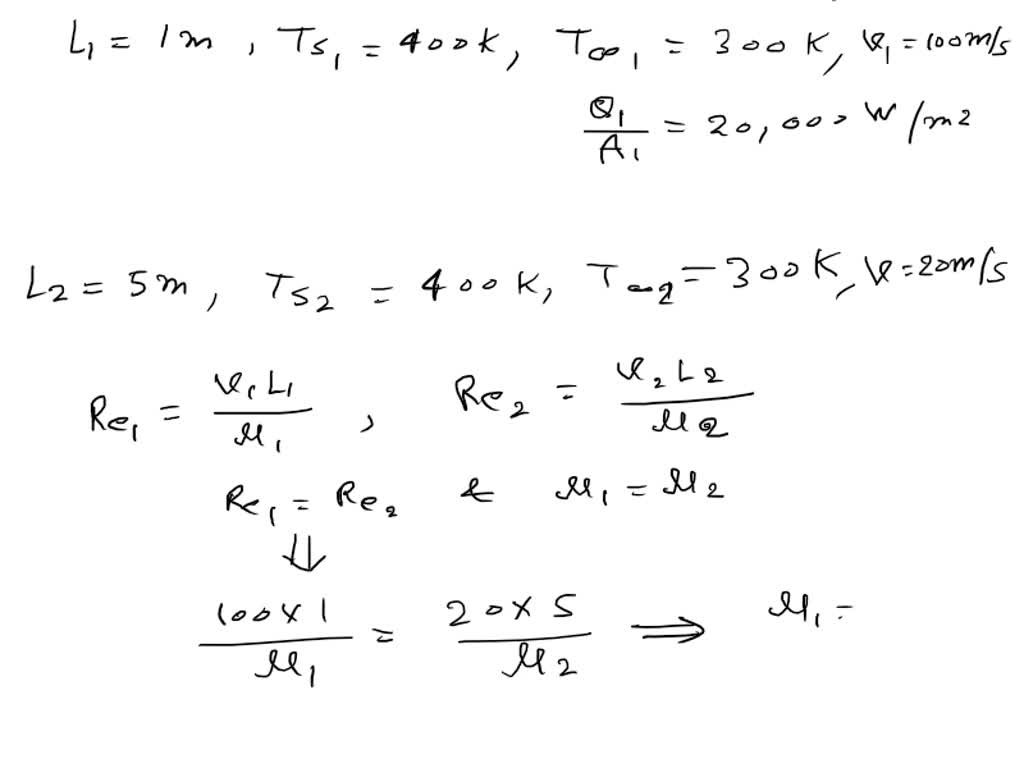 L₁ = 1m , Ts₁ = 400K, T∞₁ = 300K, V₁ = 100m/s
Q₁/A₁ = 20,000 W/m2
L2 = 5m, Ts2 = 400K, T∞2 = 300K, V = 20m/s
Re₁ = V₁L₁/μ₁ , Re₂ = V₂L₂/μ₂
Re₁ = Re₂ & μ₁ = μ₂
⇓
100×1/μ₁ = 20×5/μ₂ ⟹ μ₁ =